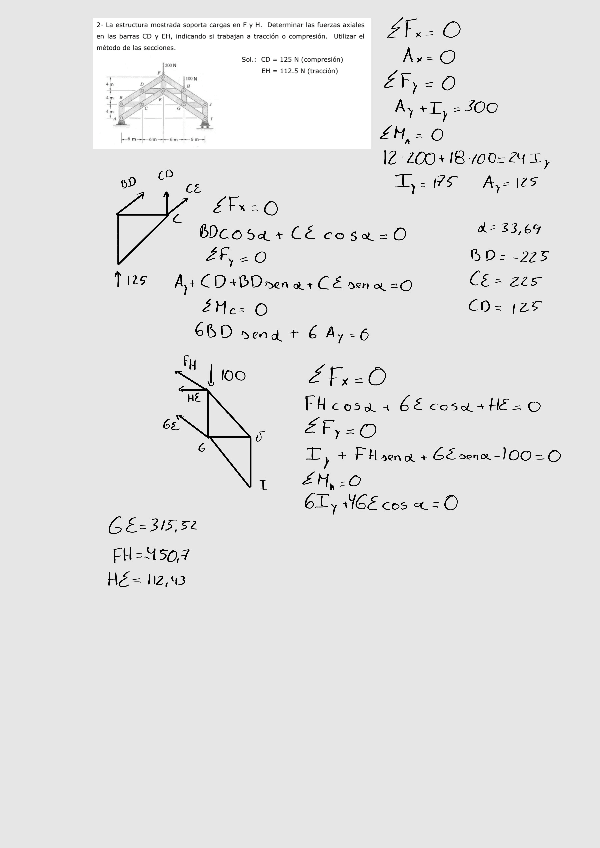 2- La estructura mostrada soporta cargas en F y H. Determinar las fuerzas axiales
en las barras CD y EH, indicando si trabajan a tracción o compresión. Utilizar el
método de las secciones.
Sol.: CD = 125 N (compresión)
EH = 112.5 N (tracción)
200 N
100 N
4 m
4 m
4 m
6 m 6 m 6 m 6 m
ΣFx = 0
Ax = 0
ΣFy = 0
Ay + Iy = 300
ΣMA = 0
12·200 + 18·100 = 24 Iy
Iy = 175 Ay = 125
BD
CD
CE
C
125
ΣFx = 0
BD cos α + CE cos α = 0
ΣFy = 0
Ay + CD + BD sen α + CE sen α = 0
ΣMc = 0
6BD sen α + 6 Ay = 6
α = 33,69
BD = -225
CE = 225
CD = 125
FH
100
HE
GE
G
J
I
ΣFx = 0
FH cos α + GE cos α + HE = 0
ΣFy = 0
Iy + FH sen α + GE sen α - 100 = 0
ΣMh = 0
6Iy + 4GE cos α = 0
GE = 315,52
FH = -450,7
HE = 112,43